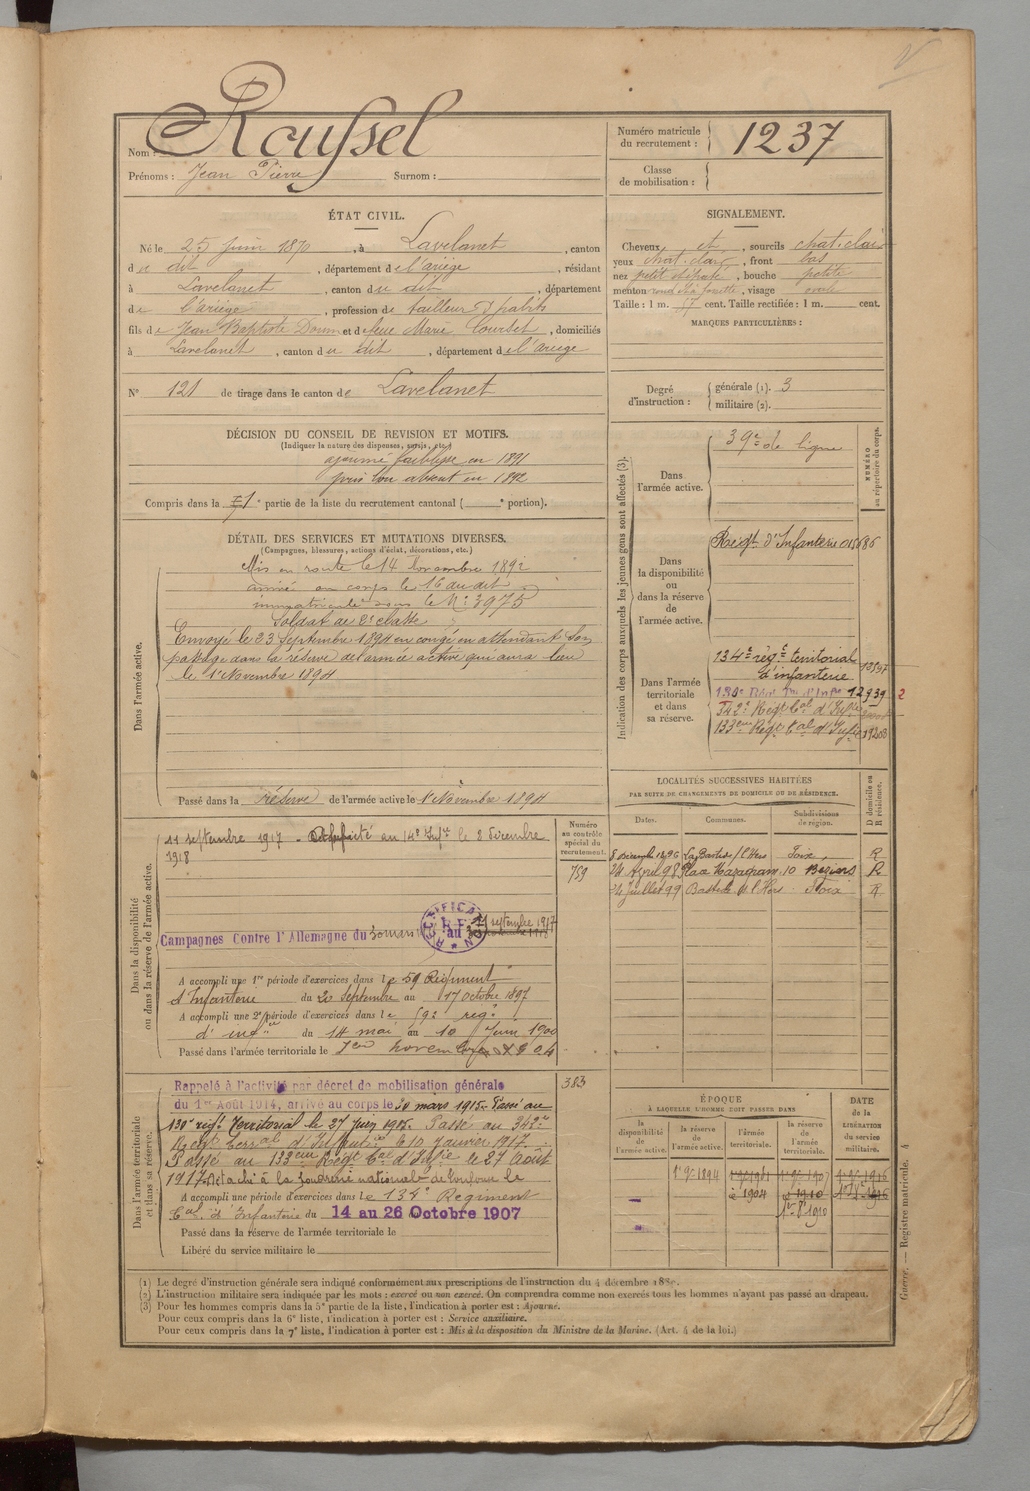 Nom : Roussel
Prénoms : Jean Pierre Surnom :
Numéro matricule du recrutement : 1237
Classe de mobilisation :
ÉTAT CIVIL.
Né le 25 Juin 1870, à Lavelanet, canton
du dit, département de l'ariège, résidant
à Lavelanet, canton du dit, département
de l'ariège, profession de tailleur d'habits
fils de Jean Baptiste et de feue Marie Courbet, domiciliés
à Lavelanet, canton du dit, département de l'ariège
N° 121 de tirage dans le canton de Lavelanet
SIGNALEMENT.
Cheveux et, sourcils chat. clair
yeux chat. clair, front bas
nez petit, bouche petite
menton rond à fossette, visage ovale
Taille : 1 m. cent. Taille rectifiée : 1 m. cent.
MARQUES PARTICULIÈRES :
Degré d'instruction : générale (1). 3
militaire (2).
DÉCISION DU CONSEIL DE REVISION ET MOTIFS.
(Indiquer la nature des dispenses, sursis, etc.)
ajourné faiblesse en 1891
pris bon absent en 1892
Compris dans la 1e partie de la liste du recrutement cantonal ( e portion).
DÉTAIL DES SERVICES ET MUTATIONS DIVERSES.
(Campagnes, blessures, actions d'éclat, décorations, etc.)
Dans l'armée active.
Mis en route le 14 Novembre 1892
arrivé au corps le 16 du dit
immatriculé sous le N° 3975
Soldat de 2e classe
Envoyé le 23 Septembre 1894 en congé en attendant son
passage dans la réserve de l'armée active qui aura lieu
le 1er Novembre 1894
Passé dans la réserve de l'armée active le 1er Novembre 1894
Indication des corps auxquels les jeunes gens sont affectés (3).
NUMÉRO au répertoire du corps.
Dans l'armée active.
39e de ligne
Dans la disponibilité ou dans la réserve de l'armée active.
Régt. d'Infanterie 015686
Dans l'armée territoriale et dans sa réserve.
134e régt territorial d'infanterie
130e Régt Tal d'Infie 12939 2
342e Régt Tal d'Infie
133eme Régt Tal d'Infie 19203
LOCALITÉS SUCCESSIVES HABITÉES
PAR SUITE DE CHANGEMENTS DE DOMICILE OU DE RÉSIDENCE.
Dates. Communes. Subdivisions de région. D domicile ou R résidence.
8 décembre 1896 La Bastide s/l'Hers Foix R
24 Avril 98 Place Mazagran, 10 Béziers R
24 Juillet 99 Bastide s. l'Hers Foix R
Dans la disponibilité ou dans la réserve de l'armée active.
Numéro au contrôle spécial du recrutement.
759
11 septembre 1917 - au 14e Infie le 8 décembre
1918
Campagnes Contre l'Allemagne du au 11 septembre 1917
RECTIFICATION R.F.
A accompli une 1re période d'exercices dans le 59 Régiment
d'Infanterie du 20 Septembre au 17 octobre 1897
A accompli une 2e période d'exercices dans le 59e regt
d'infie du 14 mai au 10 Juin 1900
Passé dans l'armée territoriale le 1er novembre 1904
Dans l'armée territoriale et dans sa réserve.
383
Rappelé à l'activité par décret de mobilisation générale
du 1er Août 1914, arrivé au corps le 30 mars 1915. Passé au
130e régt Territorial le 27 juin 1915. Passé au 342e
Régt Terral d'Infanterie le 10 Janvier 1917
Passé au 133eme Régt Tal d'Infie le 27 Août
1917. Détaché à la Poudrerie nationale de Toulouse le
A accompli une période d'exercices dans le 134e Régiment
Tal. d'Infanterie du 14 au 26 Octobre 1907
Passé dans la réserve de l'armée territoriale le
Libéré du service militaire le
ÉPOQUE
À LAQUELLE L'HOMME DOIT PASSER DANS
la disponibilité de l'armée active.
la réserve de l'armée active.
l'armée territoriale.
la réserve de l'armée territoriale.
DATE de la LIBÉRATION du service militaire.
1er 9bre 1894
1904
1910
1er 8bre 1910
1916
(1) Le degré d'instruction générale sera indiqué conformément aux prescriptions de l'instruction du 4 décembre 1889.
(2) L'instruction militaire sera indiquée par les mots : exercé ou non exercé. On comprendra comme non exercés tous les hommes n'ayant pas passé au drapeau.
(3) Pour les hommes compris dans la 5e partie de la liste, l'indication à porter est : Ajourné.
Pour ceux compris dans la 6e liste, l'indication à porter est : Service auxiliaire.
Pour ceux compris dans la 7e liste, l'indication à porter est : Mis à la disposition du Ministre de la Marine. (Art. 4 de la loi.)
Guerre. — Registre matricule. 4